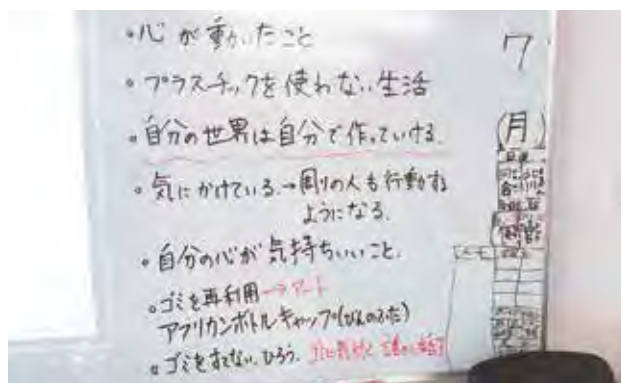 ・心が動いたこと
・プラスチックを使わない生活
・自分の世界は自分で作っていける.
・気にかけている→周りの人も行動する
ようになる.
・自分の心が気持ちいいこと.
・ゴミを再利用→アート
アフリカンボトルキャップ(びんのふた)
・ゴミをすてない、ひろう.
7
(月)
日直